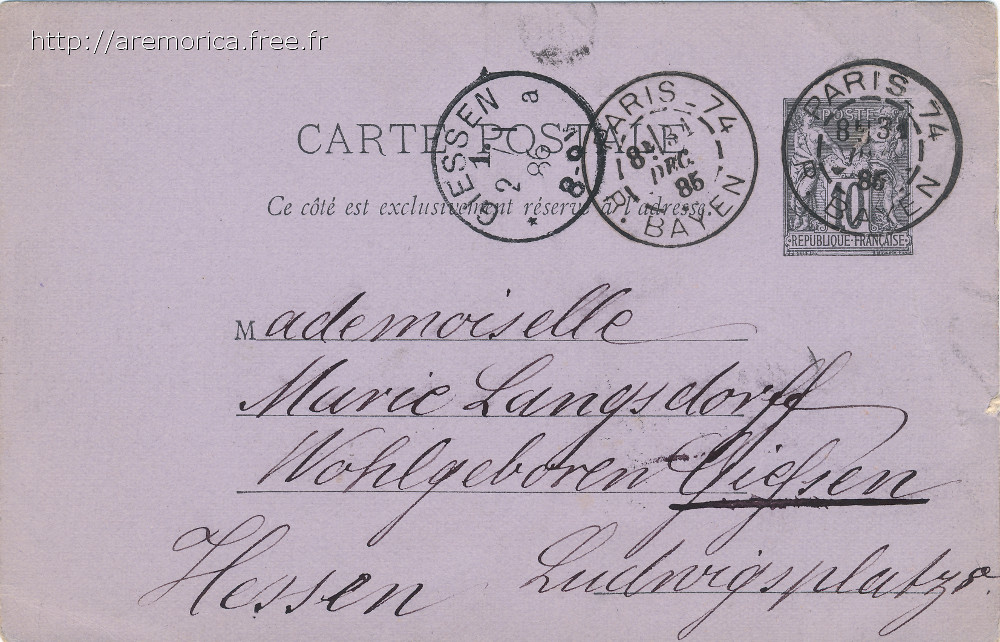 http://aremorica.free.fr
CARTE POSTALE
Ce côté est exclusivement réservé à l'adresse.
GIESSEN
2 1.
86
8-9
a
PARIS - 74
DEC.
85
R. BAYEN
PARIS 74
85
R. BAYEN
POSTE
10
REPUBLIQUE FRANÇAISE
Mademoiselle
Marie Langsdorff
Wohlgeboren Gießen
Hessen Ludwigsplatz 8.